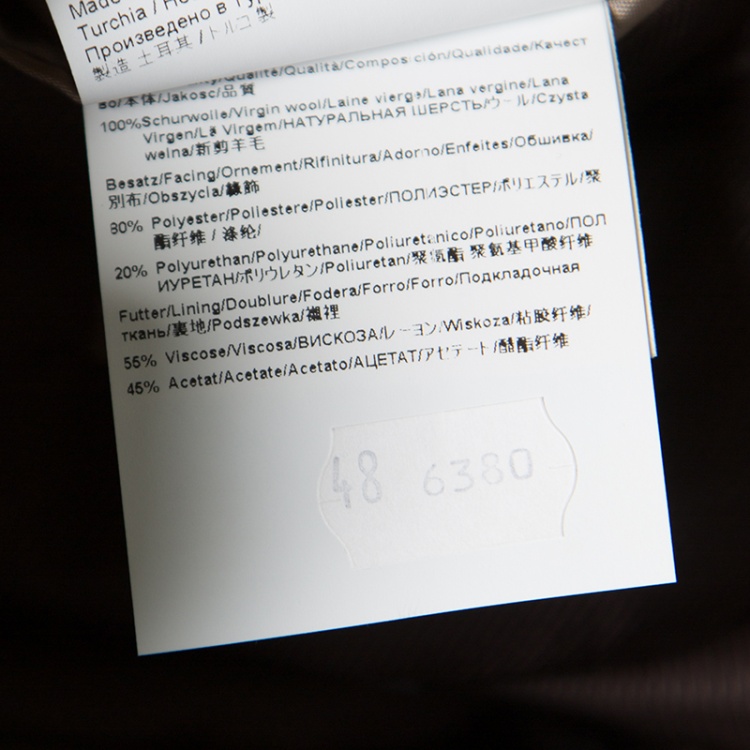 Made
Turchia / Ho
Произведено в Ту
製造 土耳其 / トルコ 製
/Qualité/Qualità/Composición/Qualidade/Качест
во/本体/Jakosc/品質
100%Schurwolle/Virgin wool/Laine vierge/Lana vergine/Lana
Virgen/Lã Virgem/НАТУРАЛЬНАЯ ШЕРСТЬ/ウール/Czysta
welna/新剪羊毛
Besatz/Facing/Ornement/Rifinitura/Adorno/Enfeites/Обшивка/
別布/Obszycia/緣飾
80% Polyester/Poliestere/Poliester/ПОЛИЭСТЕР/ポリエステル/聚
酯纤维 / 涤纶/
20% Polyurethan/Polyurethane/Poliuretanico/Poliuretano/ПОЛ
ИУРЕТАН/ポリウレタン/Poliuretan/聚氨酯 聚氨基甲酸纤维
Futter/Lining/Doublure/Fodera/Forro/Forro/Подкладочная
ткань/裏地/Podszewka/襯裡
55% Viscose/Viscosa/ВИСКОЗА/レーヨン/Wiskoza/粘胶纤维/
45% Acetat/Acetate/Acetato/АЦЕТАТ/アセテート/醋酯纤维
48 6380